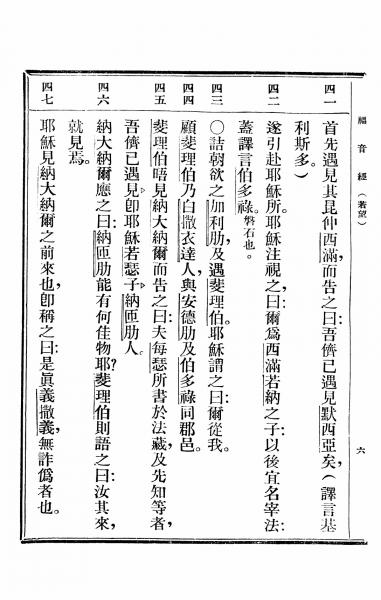 福音經（若望）
六
四一
首先遇見其昆仲西滿，而告之曰：吾儕已遇見默西亞矣，（譯言基
利斯多。）
四二
遂引赴耶穌所。耶穌注視之，曰：爾爲西滿若納之子以後宜名宰法：
蓋譯言伯多祿。磐石也。
四三
〇詰朝欲之加利肋，及遇斐理伯。耶穌謂之曰：爾從我。
四四
顧斐理伯乃白撒衣達人，與安德肋及伯多祿同郡邑。
四五
斐理伯晤見納大納爾而告之曰：夫每瑟所書於法藏，及先知等者，
吾儕已遇見卽耶穌若瑟子納匝肋人。
四六
納大納爾應之曰：納匝肋能有何佳物耶？斐理伯則語之曰：汝其來，
就見焉。
四七
耶穌見納大納爾之前來也，卽稱之曰：是眞義撒義，無詐僞者也。